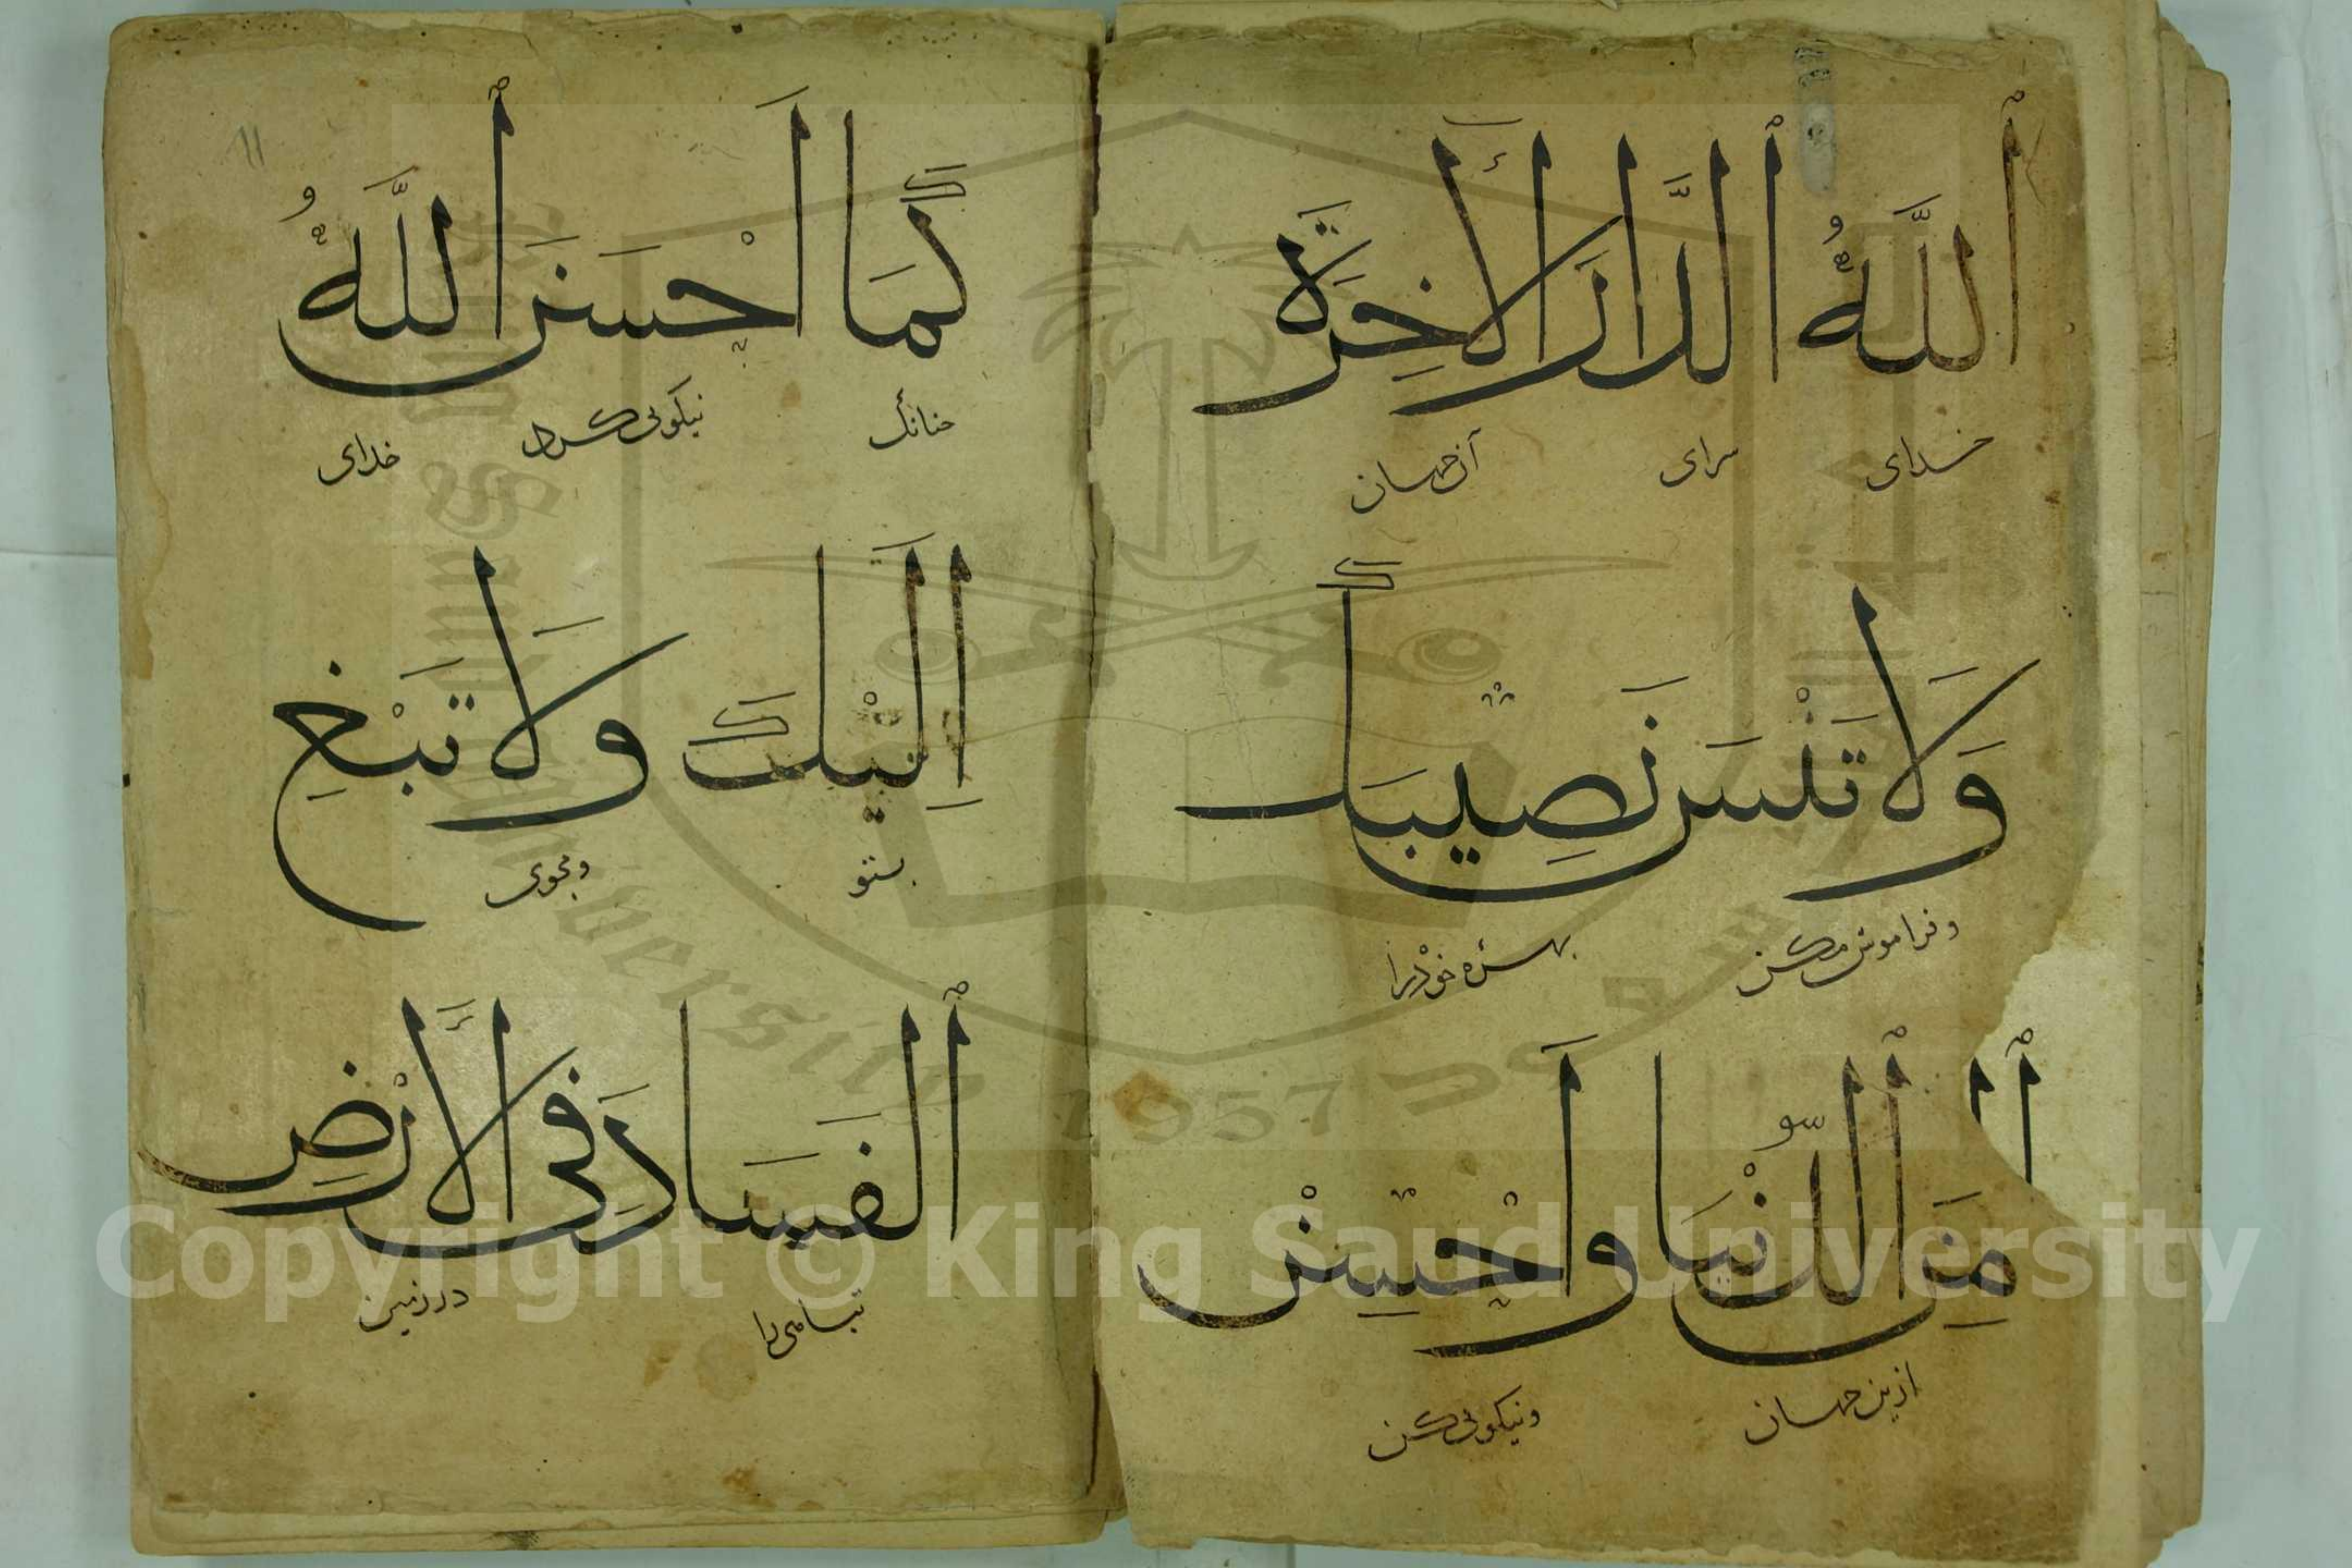 ٱللَّهُ ٱلدَّارَ ٱلْأَخِرَةَ
خدای سرای آن جهان
وَلَا تَنْسَ نَصِيبَكَ
وفراموش مکن بهره خود را
مِنَ ٱلدُّنْيَا وَأَحْسِنْ
ازین جهان ونیکوئی کن
11
كَمَا أَحْسَنَ ٱللَّهُ
چنانک نیکوئی کرد خدای
إِلَيْكَ وَلَا تَبْغِ
بتو ومجوی
ٱلْفَسَادَ فِى ٱلْأَرْضِ
تباهی را در زمین
Copyright © King Saud University
King Saud University
1957